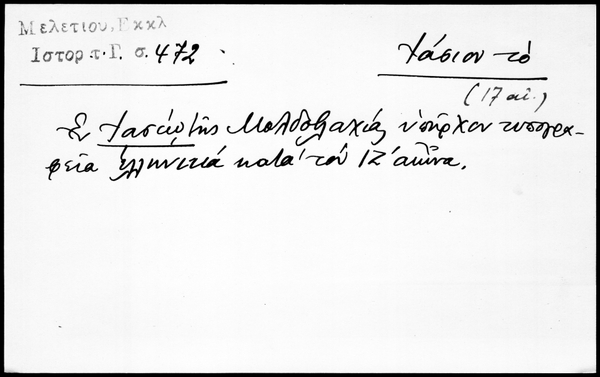 Μελετίου, Εκκλ
Ιστορ τ. Γ. σ. 472
Ιάσιον τό
(17 αἰ.)
Ἐν Ἰασίῳ τῆς Μολδοβλαχίας ὑπῆρχον τυπογρα-
φεῖα ἑλληνικά κατά τόν ΙΖ' αἰῶνα.